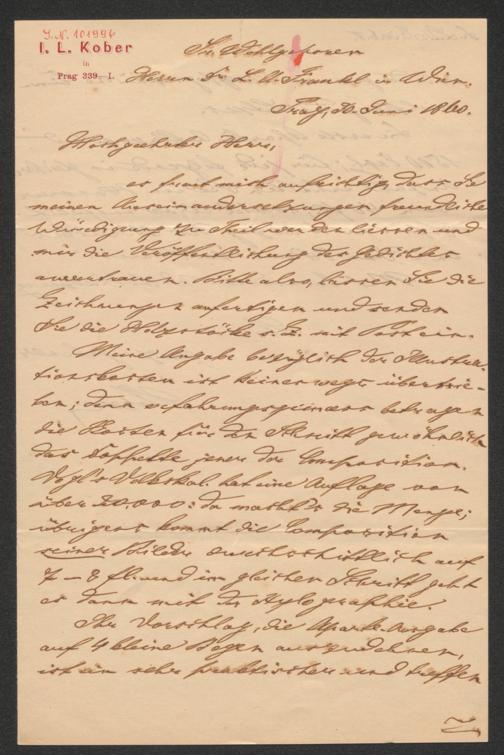 J.N. 101996
I. L. Kober
in
Prag 339–I.
Sr. Wohlgeboren
Herrn Dr. L. A. Frankl in Wien.
Prag, 30. Juni 1860.
Hochgeehrter Herr,
es freut mich aufrichtig, dass Sie
meinen Auseinandersetzungen freundliche
Würdigung zu Theil werden liessen und
mir die Veröffentlichung des Gedichtes
anvertrauen. Bitte also, lassen Sie die
Zeichnungen anfertigen und senden
Sie die Holzstöcke s. Z. mit Post ein.
Meine Angabe bezüglich der Illustra-
tionskosten ist keineswegs übertrie-
ben; denn erfahrungsgemäss betragen
die Kosten für den Schnitt gewöhnlich
das doppelte jener der Composition.
Vogl's Volkskal. hat eine Auflage von
über 20.000: da macht's die Menge;
übrigens kommt die Composition
seiner Bilder durchschnittlich auf
7 – 8 fl. und im gleichen Schritt geht
es dann mit der Xylographie.
Ihr Vorschlag, die Aparte Ausgabe
auf 4 kleine Bogen auszudehnen,
ist ein sehr praktischer und treffen